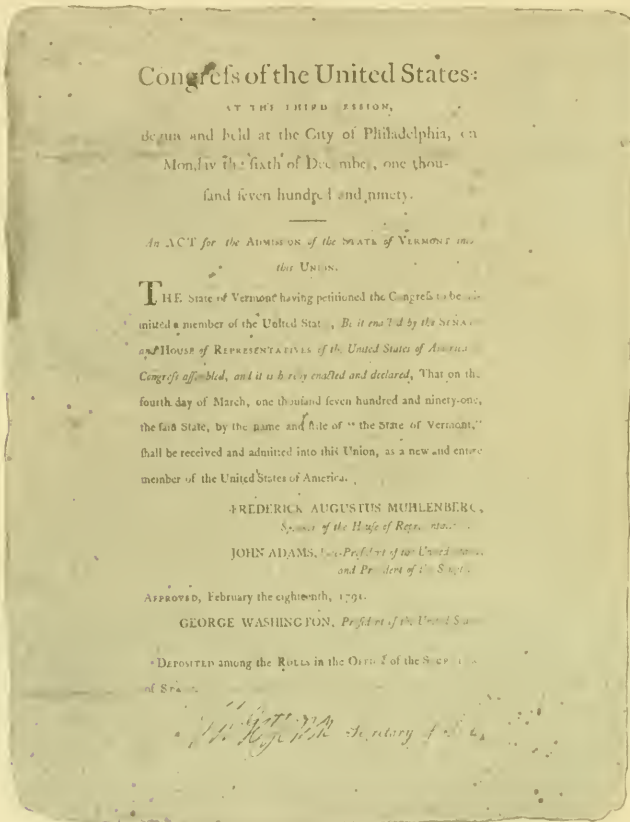 Congreſs of the United States:
AT THE THIRD SESSION,
Begun and held at the City of Philadelphia, on
Monday the ſixth of December, one thou-
ſand ſeven hundred and ninety.
An ACT for the ADMISSION of the STATE of VERMONT into
this UNION.
THE State of Vermont having petitioned the Congreſs to be ad-
mitted a member of the United States, Be it enacted by the SENATE
and HOUSE of REPRESENTATIVES of the United States of America
Congreſs aſſembled, and it is hereby enacted and declared, That on the
fourth day of March, one thouſand ſeven hundred and ninety-one,
the ſaid State, by the name and ſtile of “ the State of Vermont,”
ſhall be received and admitted into this Union, as a new and entire
member of the United States of America.
FREDERICK AUGUSTUS MUHLENBERG,
Speaker of the Houſe of Repreſentatives.
JOHN ADAMS, Vice-Preſident of the United States,
and Preſident of the Senate.
APPROVED, February the eighteenth, 1791.
GEORGE WASHINGTON, Preſident of the United States.
DEPOSITED among the ROLLS in the OFFICE of the SECRETARY
of STATE.
Secretary of